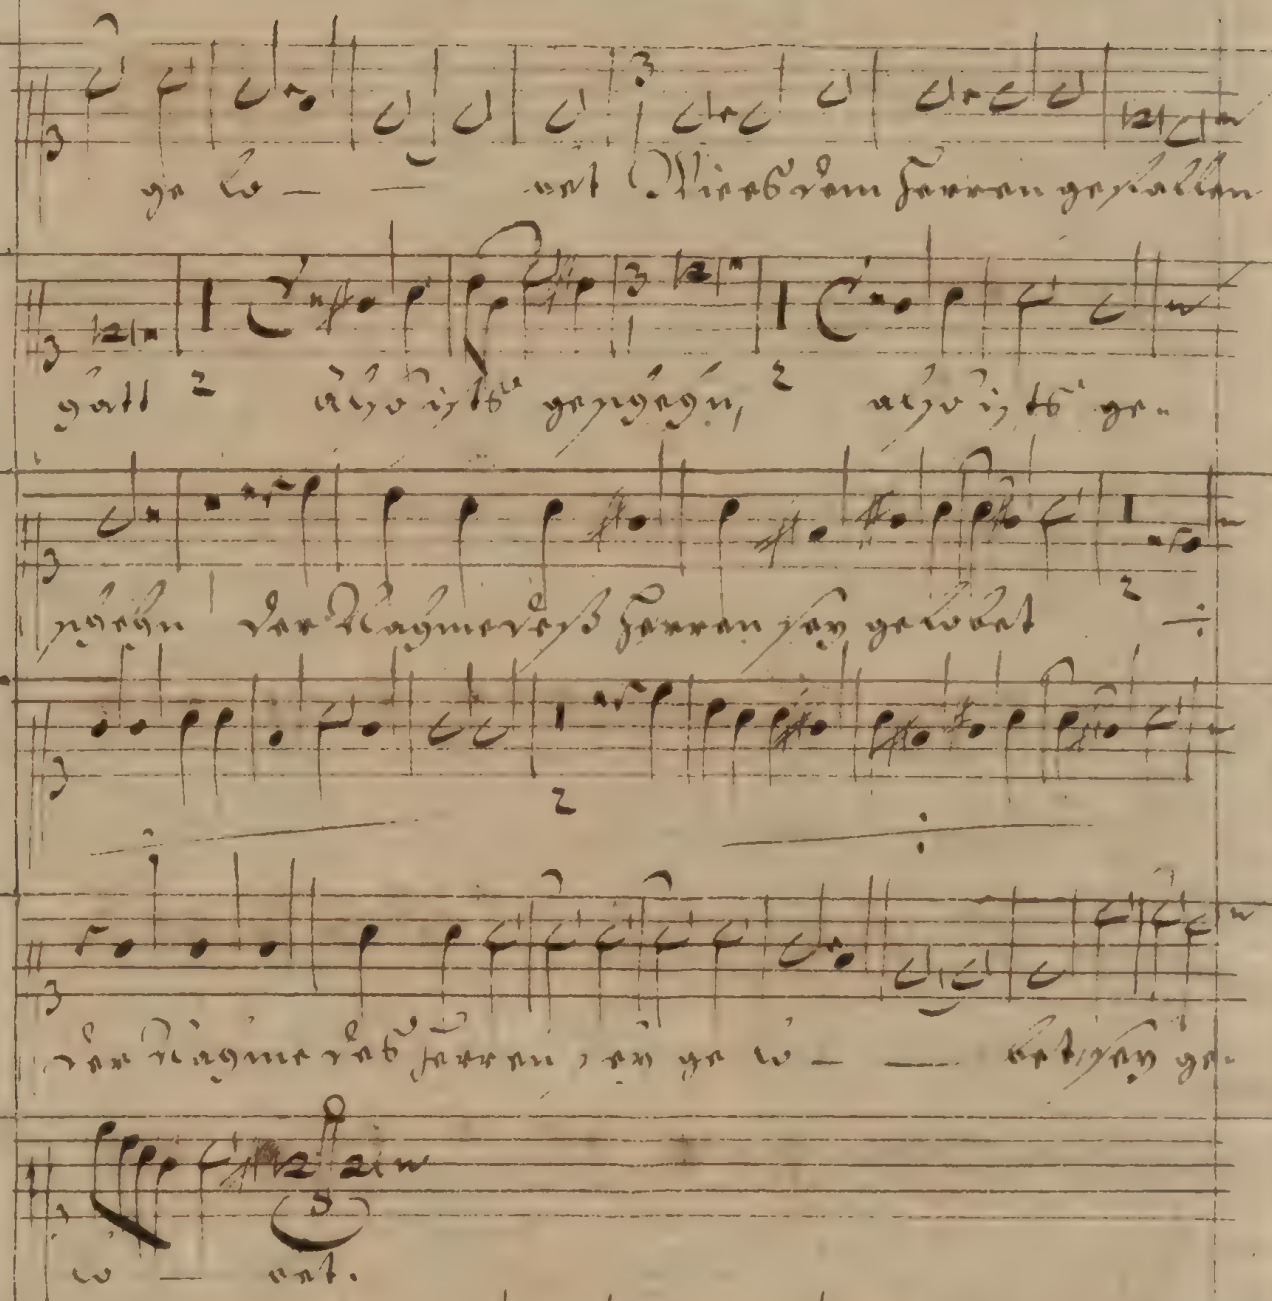 ge lo — — bet Wie es dem Herren gefallen
hatt 2 also ists geschehn, 2 also ists ge-
schehn der Nahme deß Herren sey gelobet 2
2
der Nahme des Herren sey ge lo — — bet, sey ge-
lo — bet.